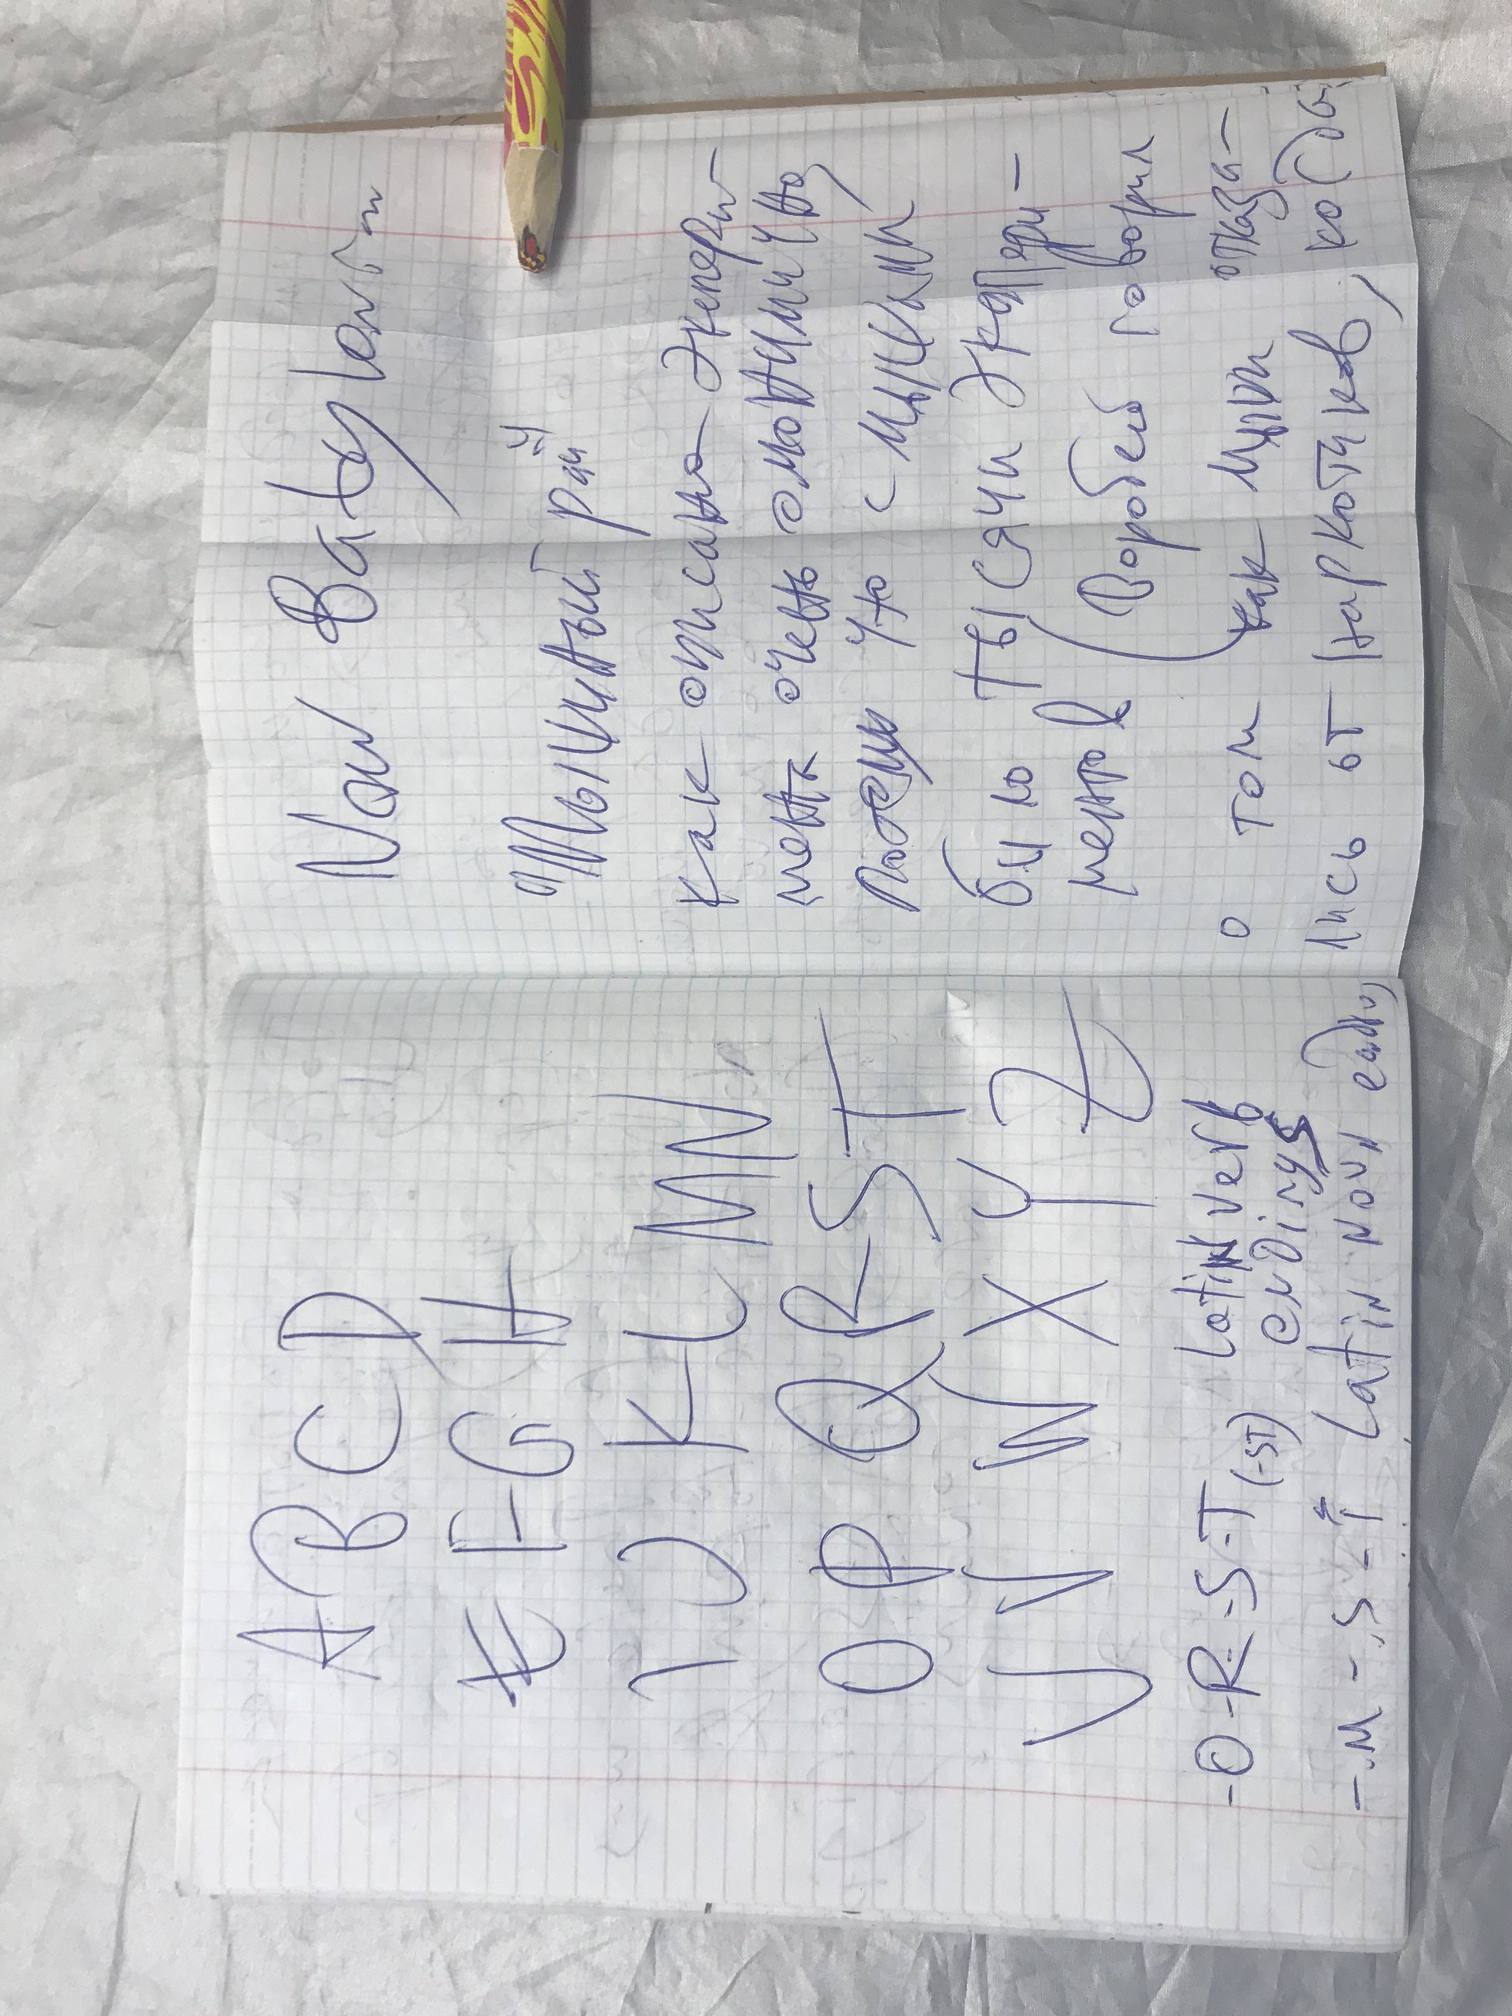 A B C D
E F G H
I J K L M N
O P Q R S T
U V W X Y Z
-O-R-S-T Latin verb
(-ST) endings
-M-S-T Latin noun
New Babylon
Мышиный рай
как описано экспери
мент очень
Потому что с мышами
было тысячи экспери-
ментов (Воробей говорил
о том как мыши отказы-
лись от наркотиков, когда